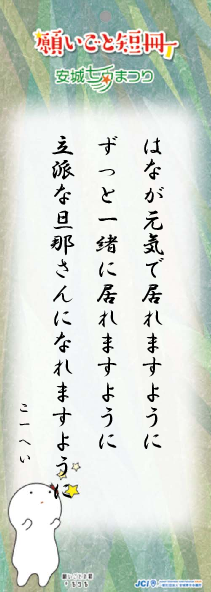 願いごと短冊
安城七夕まつり
はなが元気で居れますように
ずっと一緒に居れますように
立派な旦那さんになれますように
こーへい
JCI